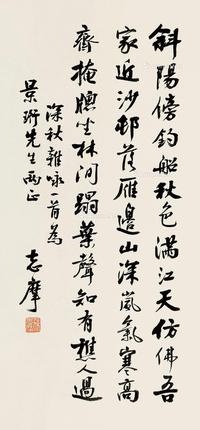 斜陽傍釣船秋色滿江天仿佛吾
家近沙邨落雁邊山深嵐氣寒高
齋掩牕坐林間蹋葉聲知有樵人過
深秋雜咏一首為
景珩先生兩正
志摩